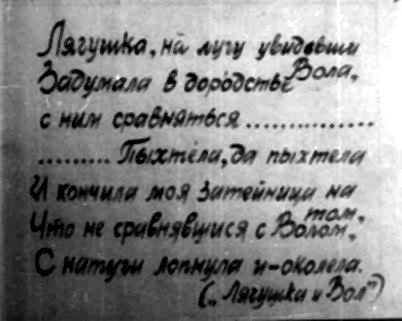 Лягушка, на лугу увидевши
Задумала в дородстве Вола,
с ним сравняться ...............
......... Пыхтела, да пыхтела
И кончила моя затейница на
Что не сравнявшися с Волом, том,
С натуги лопнула и-околела.
(„Лягушка и Вол")